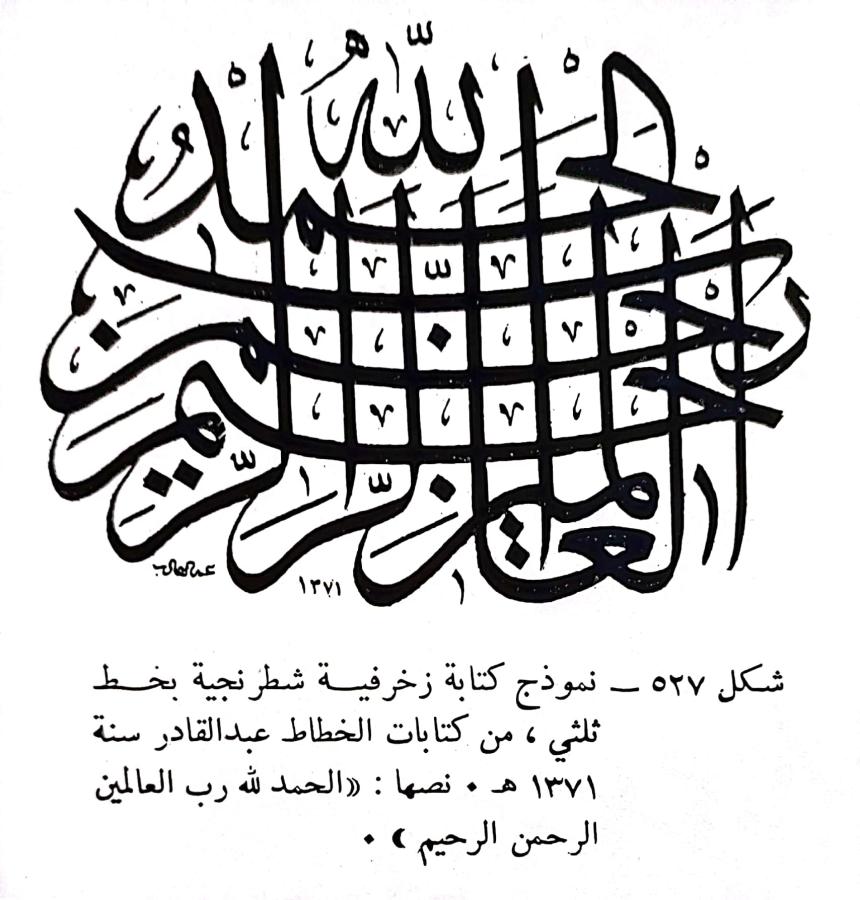 الحمد لله
رب العالمين
الرحمن
الرحيم
١٣٧١
شكل ٥٢٧ ــ نموذج كتابة زخرفيــة شطرنجية بخــط
ثلثي ، من كتابات الخطاط عبدالقادر سنة
١٣٧١ هـ ٠ نصها : «الحمد لله رب العالمين
الرحمن الرحيم » ٠